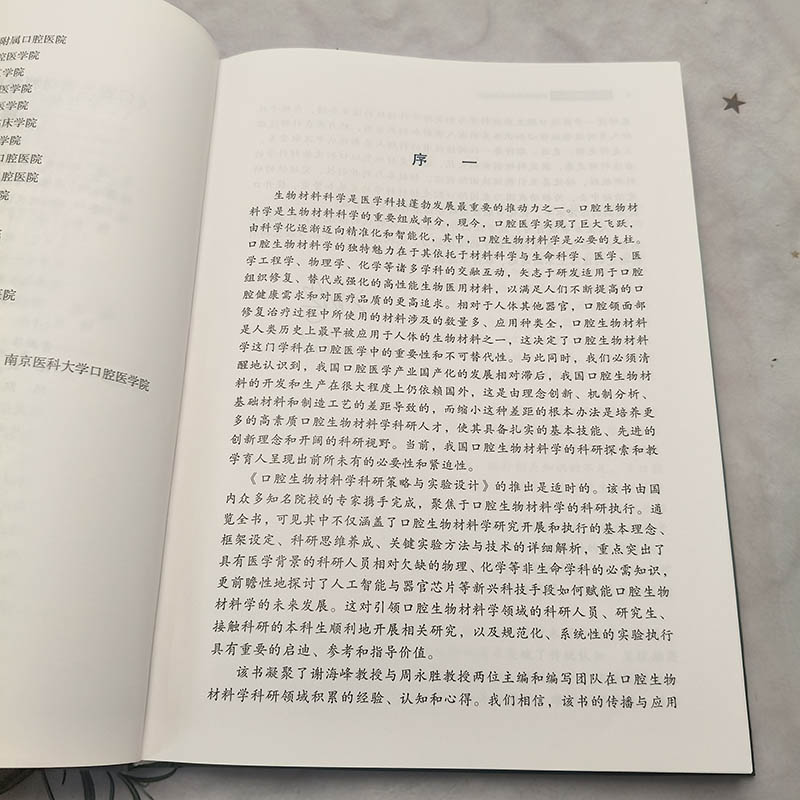 附属口腔医院
腔医学院
医学院
医学院
床学院
学院
口腔医院
口腔医院
院
医院
南京医科大学口腔医学院
序 一
生物材料科学是医学科技蓬勃发展最重要的推动力之一。口腔生物材
料学是生物材料科学的重要组成部分，现今，口腔医学实现了巨大飞跃，
由科学化逐渐迈向精准化和智能化，其中，口腔生物材料学是必要的支柱。
口腔生物材料学的独特魅力在于其依托于材料科学与生命科学、医学、医
学工程学、物理学、化学等诸多学科的交融互动，矢志于研发适用于口腔
组织修复、替代或强化的高性能生物医用材料，以满足人们不断提高的口
腔健康需求和对医疗品质的更高追求。相对于人体其他器官，口腔颌面部
修复治疗过程中所使用的材料涉及的数量多、应用种类全，口腔生物材料
是人类历史上最早被应用于人体的生物材料之一，这决定了口腔生物材料
学这门学科在口腔医学中的重要性和不可替代性。与此同时，我们必须清
醒地认识到，我国口腔医学产业国产化的发展相对滞后，我国口腔生物材
料的开发和生产在很大程度上仍依赖国外，这是由理念创新、机制分析、
基础材料和制造工艺的差距导致的，而缩小这种差距的根本办法是培养更
多的高素质口腔生物材料学科研人才，使其具备扎实的基本技能、先进的
创新理念和开阔的科研视野。当前，我国口腔生物材料学的科研探索和教
学育人呈现出前所未有的必要性和紧迫性。
《口腔生物材料学科研策略与实验设计》的推出是适时的。该书由国
内众多知名院校的专家携手完成，聚焦于口腔生物材料学的科研执行。通
览全书，可见其中不仅涵盖了口腔生物材料学研究开展和执行的基本理念、
框架设定、科研思维养成、关键实验方法与技术的详细解析，重点突出了
具有医学背景的科研人员相对欠缺的物理、化学等非生命学科的必需知识，
更前瞻性地探讨了人工智能与器官芯片等新兴科技手段如何赋能口腔生物
材料学的未来发展。这对引领口腔生物材料学领域的科研人员、研究生、
接触科研的本科生顺利地开展相关研究，以及规范化、系统性的实验执行
具有重要的启迪、参考和指导价值。
该书凝聚了谢海峰教授与周永胜教授两位主编和编写团队在口腔生物
材料学科研领域积累的经验、认知和心得。我们相信，该书的传播与应用